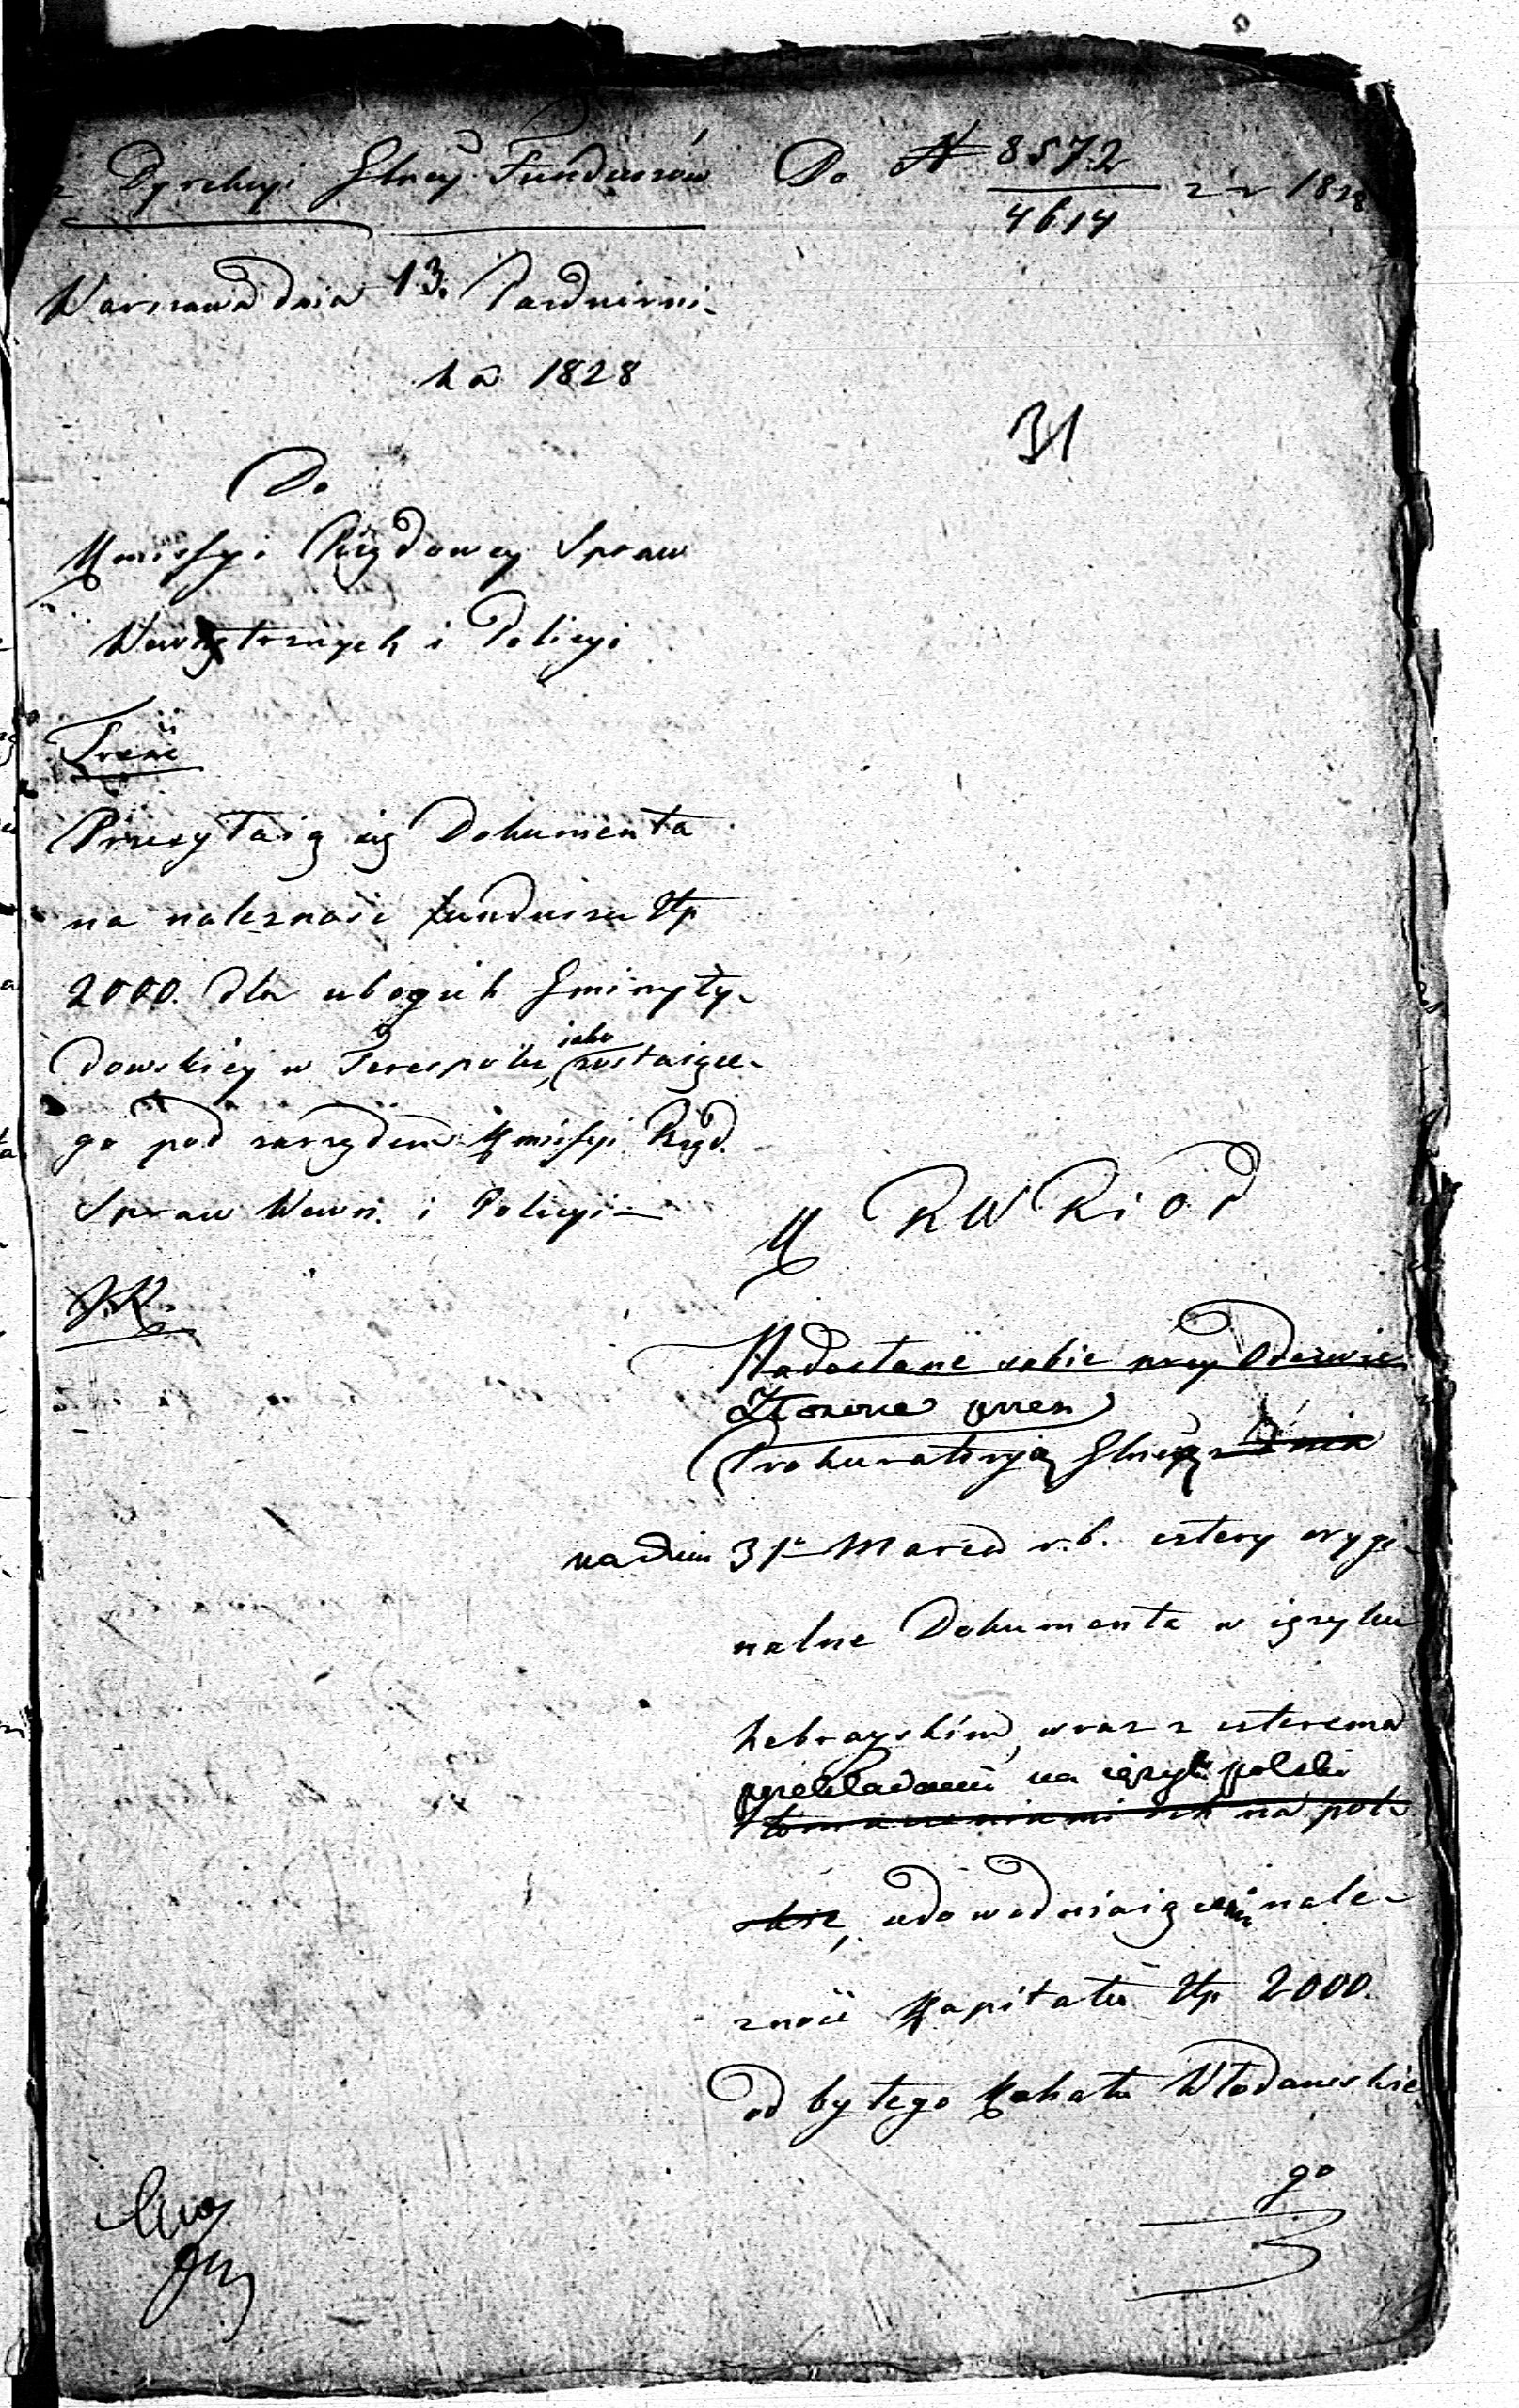 z Dyrekcyi Głney Funduszów Do N 8572/4614 z r 1828
Warszawa dnia 13. Październi-
ka 1828
31
Do
Kmissyi Rządowey Spraw
Wewnętrznych i Policyi
Treść
Przesyłaią się Dokumenta
na należność funduszu Złp
2000. dla ubogich Gminy Ży-
dowskiey w Terespolu, jako zostaiące-
go pod zarządem Kmissyi Rząd.
Spraw Wewn. i Policyi
K R W R i O P
Nadesłane sobie przy Odezwie
Złożone przez
Prokuratoryą Głną z dnia
na dniu 31 Marca r. b. cztery orygi-
nalne Dokumenta w ięzyku
hebrayskim, wraz z czterema
przekładami na ięzyk polski
tłomaczeniami ich na pol-
skie, udowodniaiącemi nale-
żność Kapitału Złp 2000.
od byłego Kahału Włodawskie
go